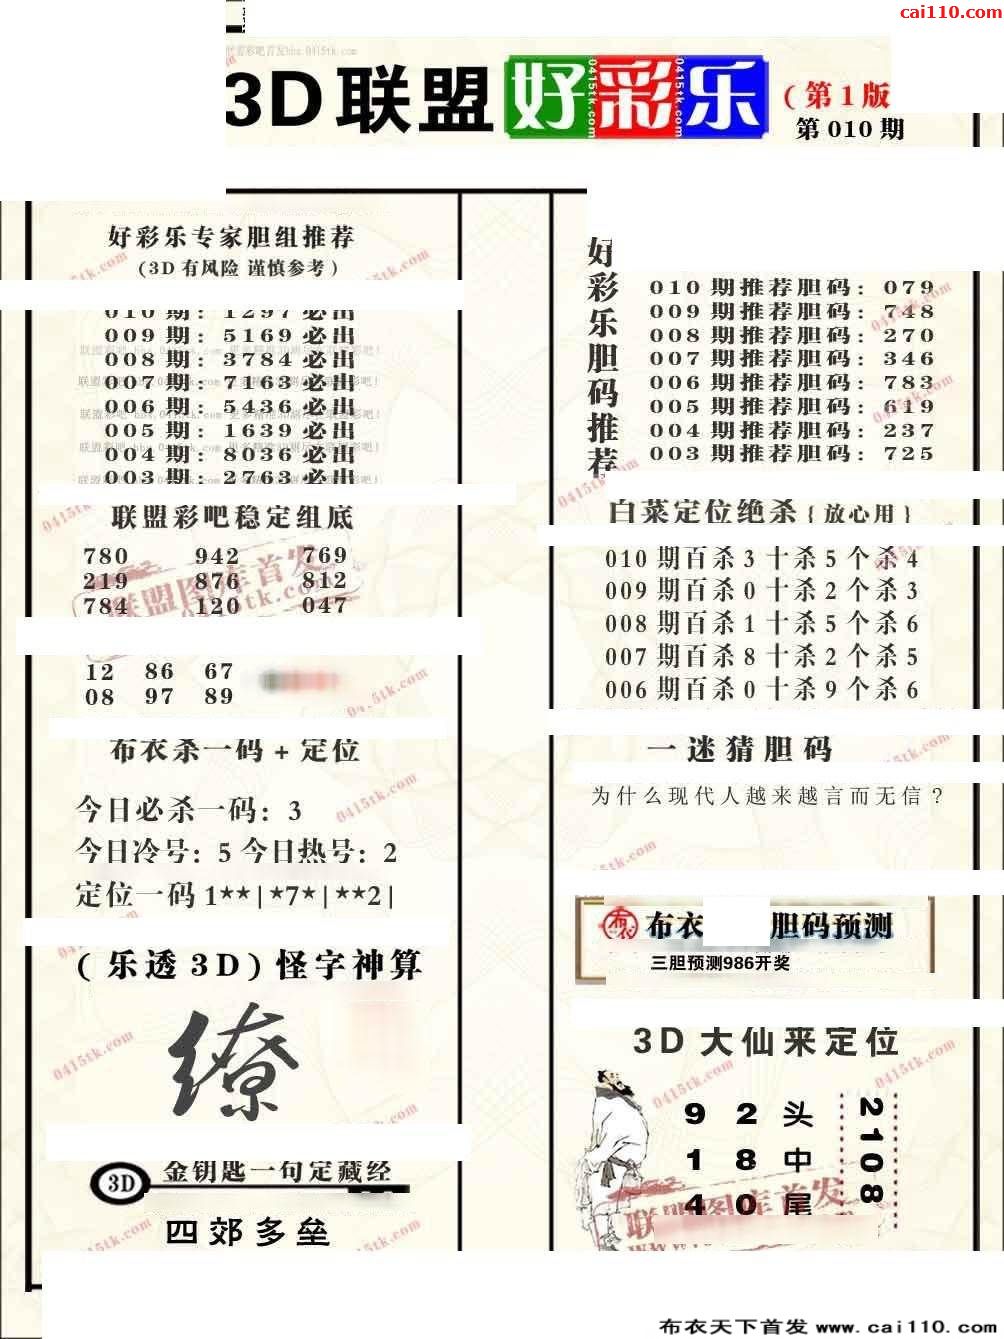 cai110.com
3D联盟好彩乐
(第1版
第010期
好彩乐专家胆组推荐
(3D有风险 谨慎参考)
010期: 1297必出
009期: 5169必出
008期: 3784必出
007期: 7163必出
006期: 5436必出
005期: 1639必出
004期: 8036必出
003期: 2763必出
联盟彩吧稳定组底
780 942 769
219 876 812
784 120 047
12 86 67
08 97 89
布衣杀一码+定位
今日必杀一码: 3
今日冷号: 5 今日热号: 2
定位一码 1**|*7*|**2|
(乐透3D)怪字神算
缭
3D 金钥匙一句定藏经
四郊多垒
好彩乐胆码推荐
010期推荐胆码: 079
009期推荐胆码: 748
008期推荐胆码: 270
007期推荐胆码: 346
006期推荐胆码: 783
005期推荐胆码: 619
004期推荐胆码: 237
003期推荐胆码: 725
白菜定位绝杀{放心用}
010期百杀3十杀5个杀4
009期百杀0十杀2个杀3
008期百杀1十杀5个杀6
007期百杀8十杀2个杀5
006期百杀0十杀9个杀6
一迷猜胆码
为什么现代人越来越言而无信?
布衣 胆码预测
三胆预测986开奖
3D大仙来定位
9 2 头
1 8 中
4 0 尾
2108
联盟图库首发
0415tk.com
布衣天下首发 www.cai110.com